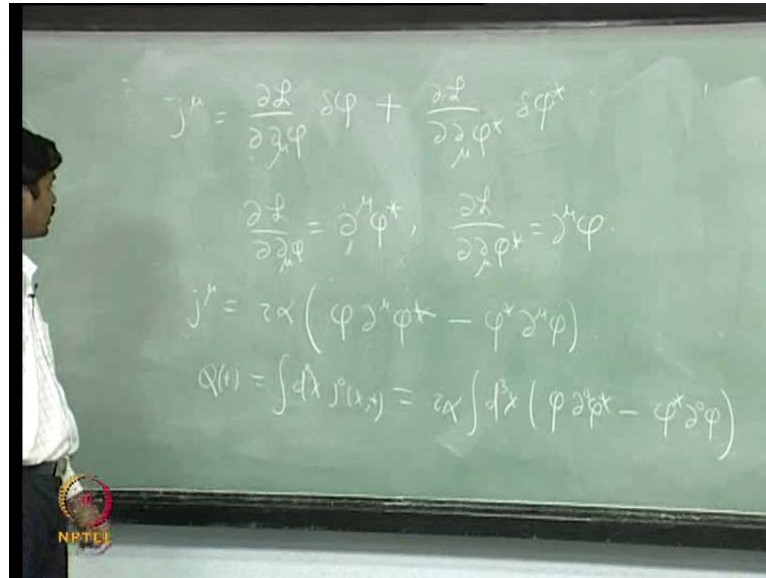 j^μ = ∂ℒ/∂∂_μφ δφ + ∂ℒ/∂∂_μφ* δφ*
∂ℒ/∂∂_μφ = ∂^μφ*, ∂ℒ/∂∂_μφ* = ∂^μφ.
j^μ = iα(φ∂^μφ* − φ*∂^μφ).
Q(t) = ∫d³x j⁰(x,t) = iα∫d³x(φ∂⁰φ* − φ*∂⁰φ)
NPTEL